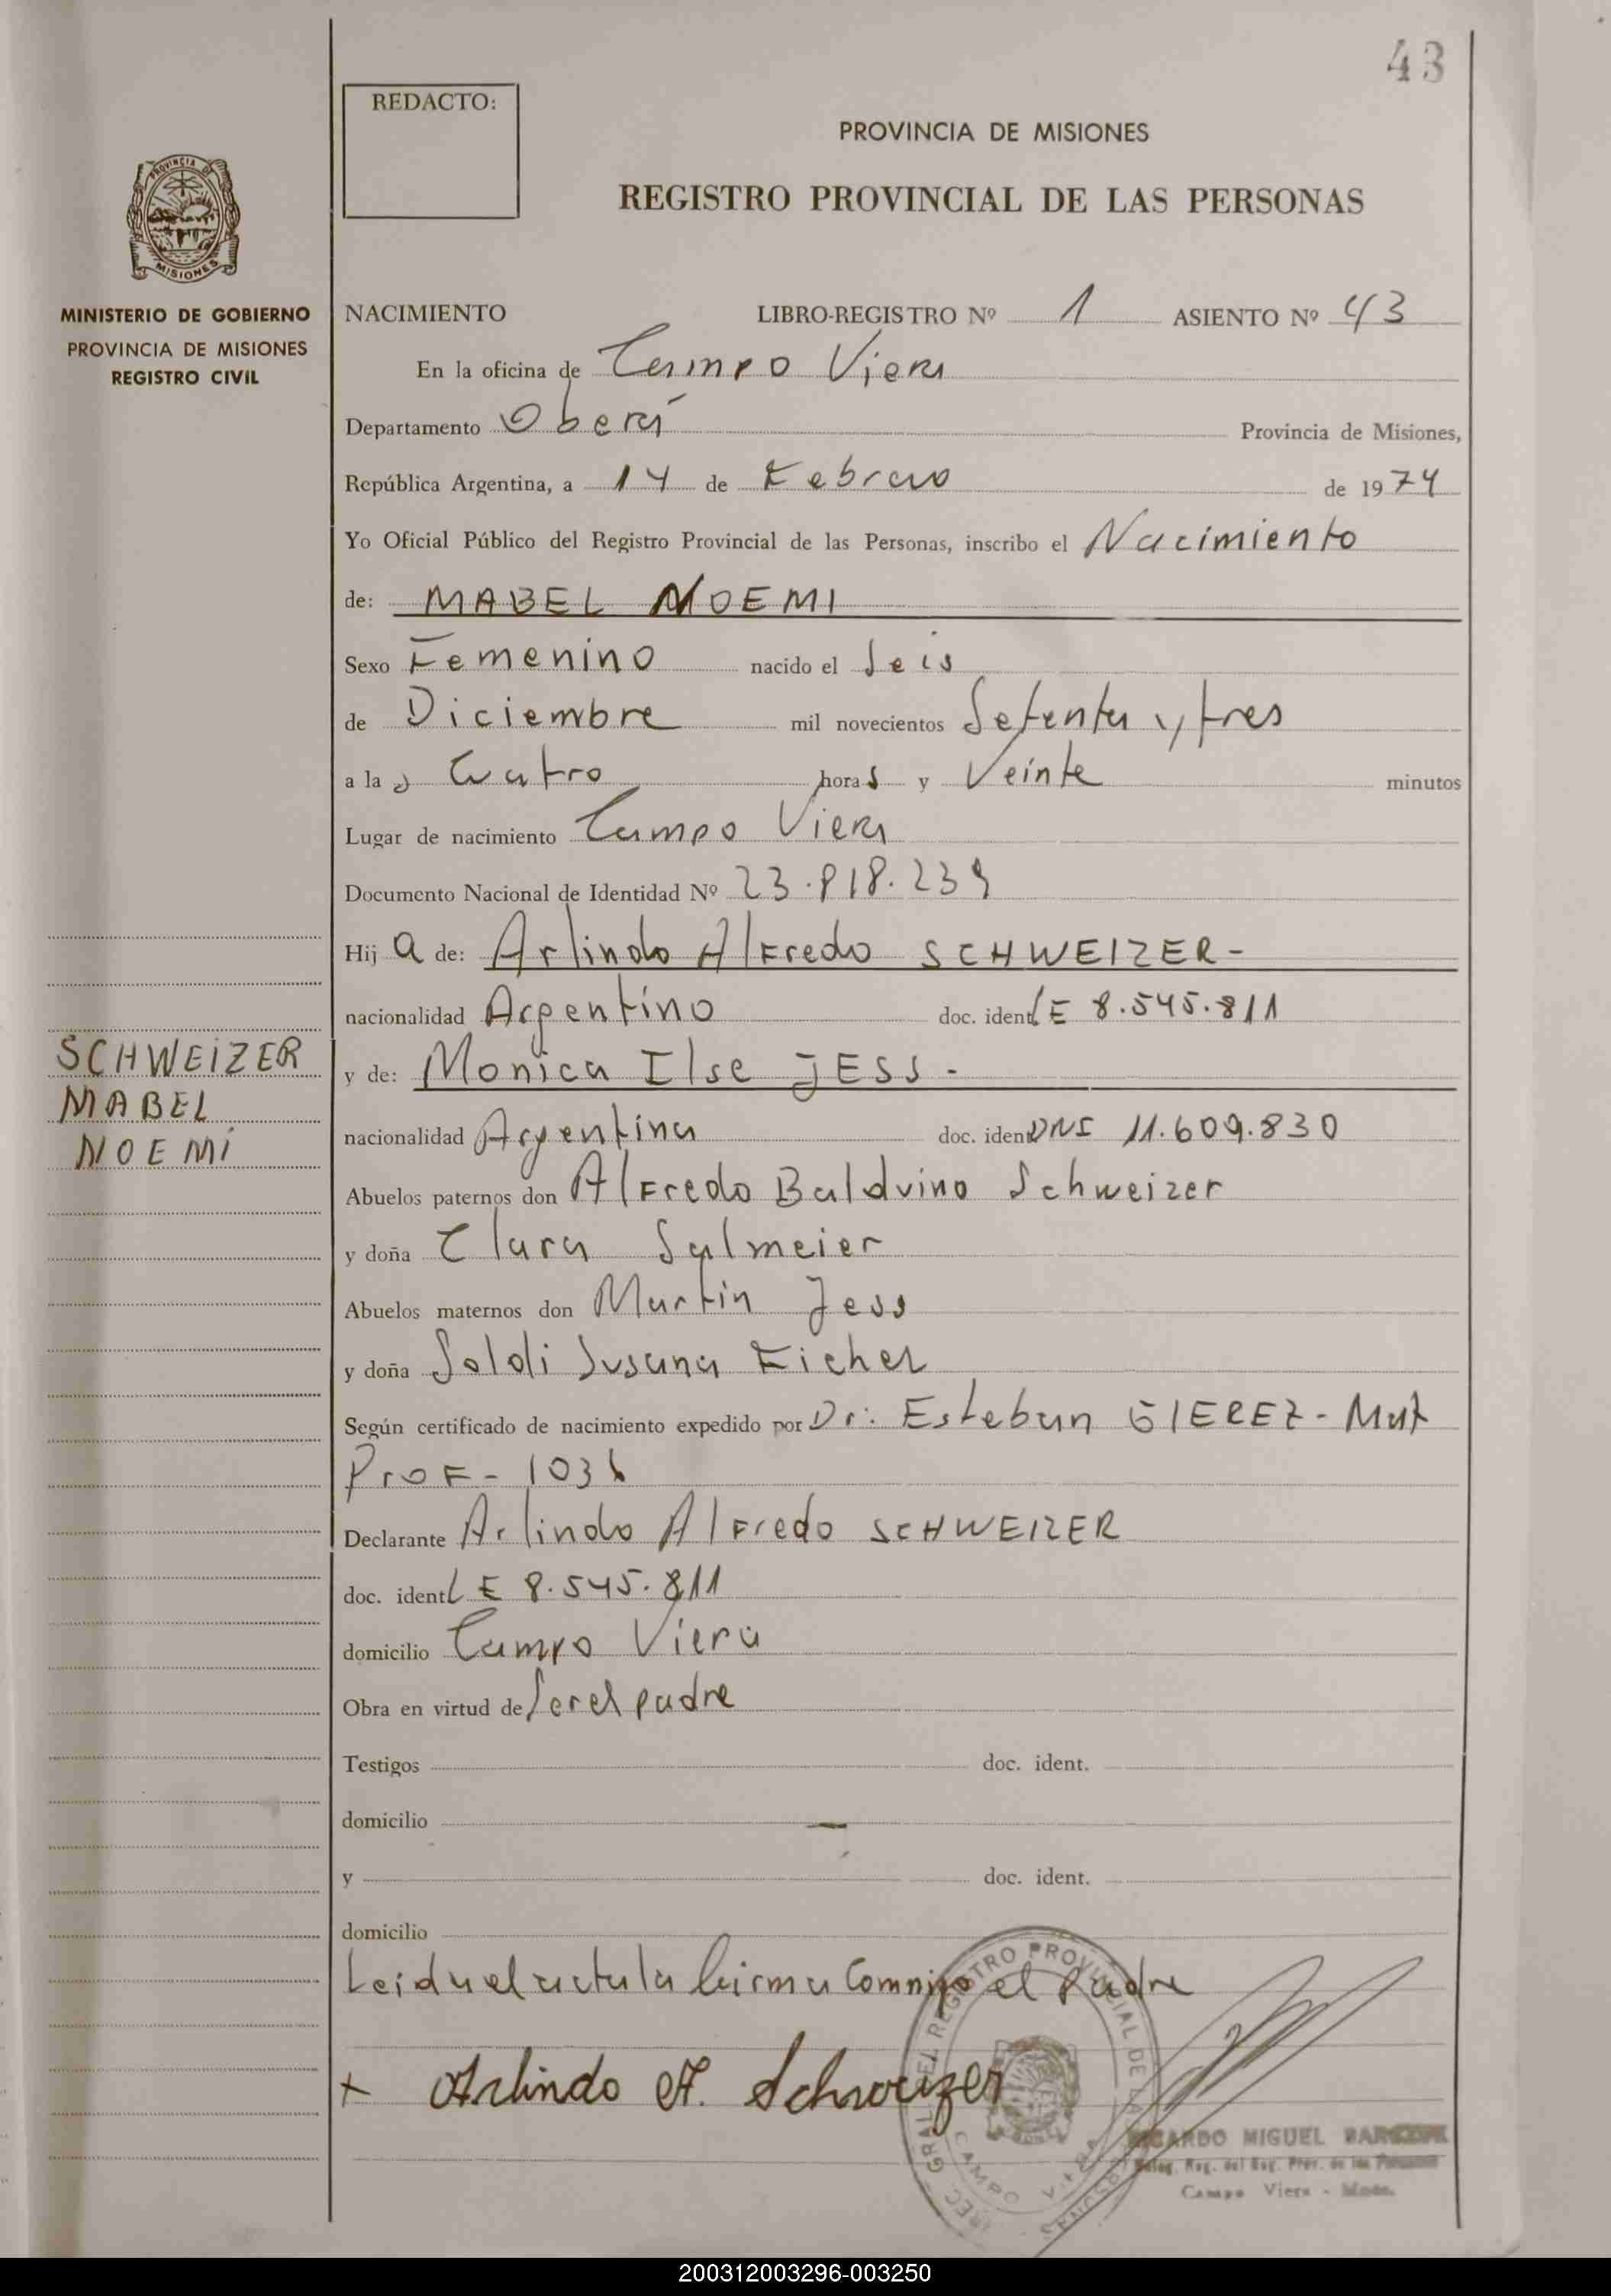 43
REDACTO:
PROVINCIA DE MISIONES
REGISTRO PROVINCIAL DE LAS PERSONAS
MISIONES
MINISTERIO DE GOBIERNO
PROVINCIA DE MISIONES
REGISTRO CIVIL
NACIMIENTO LIBRO-REGISTRO Nº 1 ASIENTO Nº 43
En la oficina de Campo Viera
Departamento Oberá Provincia de Misiones,
República Argentina, a 14 de Febrero de 1974
Yo Oficial Público del Registro Provincial de las Personas, inscribo el Nacimiento
de: MABEL NOEMI
Sexo Femenino nacido el Seis
de Diciembre mil novecientos Setenta y tres
a las Cuatro horas y Veinte minutos
Lugar de nacimiento Campo Viera
Documento Nacional de Identidad Nº 23.818.239
Hija de: Arlindo Alfredo SCHWEIZER-
nacionalidad Argentino doc. ident LE 8.545.811
SCHWEIZER
MABEL
NOEMI
y de: Monica Ilse JESS-
nacionalidad Argentina doc. iden DNI 11.609.830
Abuelos paternos don Alfredo Baldvino Schweizer
y doña Clara Salmeier
Abuelos maternos don Martin Jess
y doña Soldi Susana Eicher
Según certificado de nacimiento expedido por Dr: Esteban GIEREZ- Mat
Prof- 1036
Declarante Arlindo Alfredo SCHWEIZER
doc. ident LE 8.545.811
domicilio Campo Viera
Obra en virtud de Ser el padre
Testigos doc. ident.
domicilio
y doc. ident.
domicilio
Leida el acta la firma Commigo el Padre
+ Arlindo A. Schweizer
REGISTRO PROVINCIAL DE LAS PERSONAS
CAMPO VIERA
RICARDO MIGUEL
Campo Viera - Mnes.
200312003296-003250